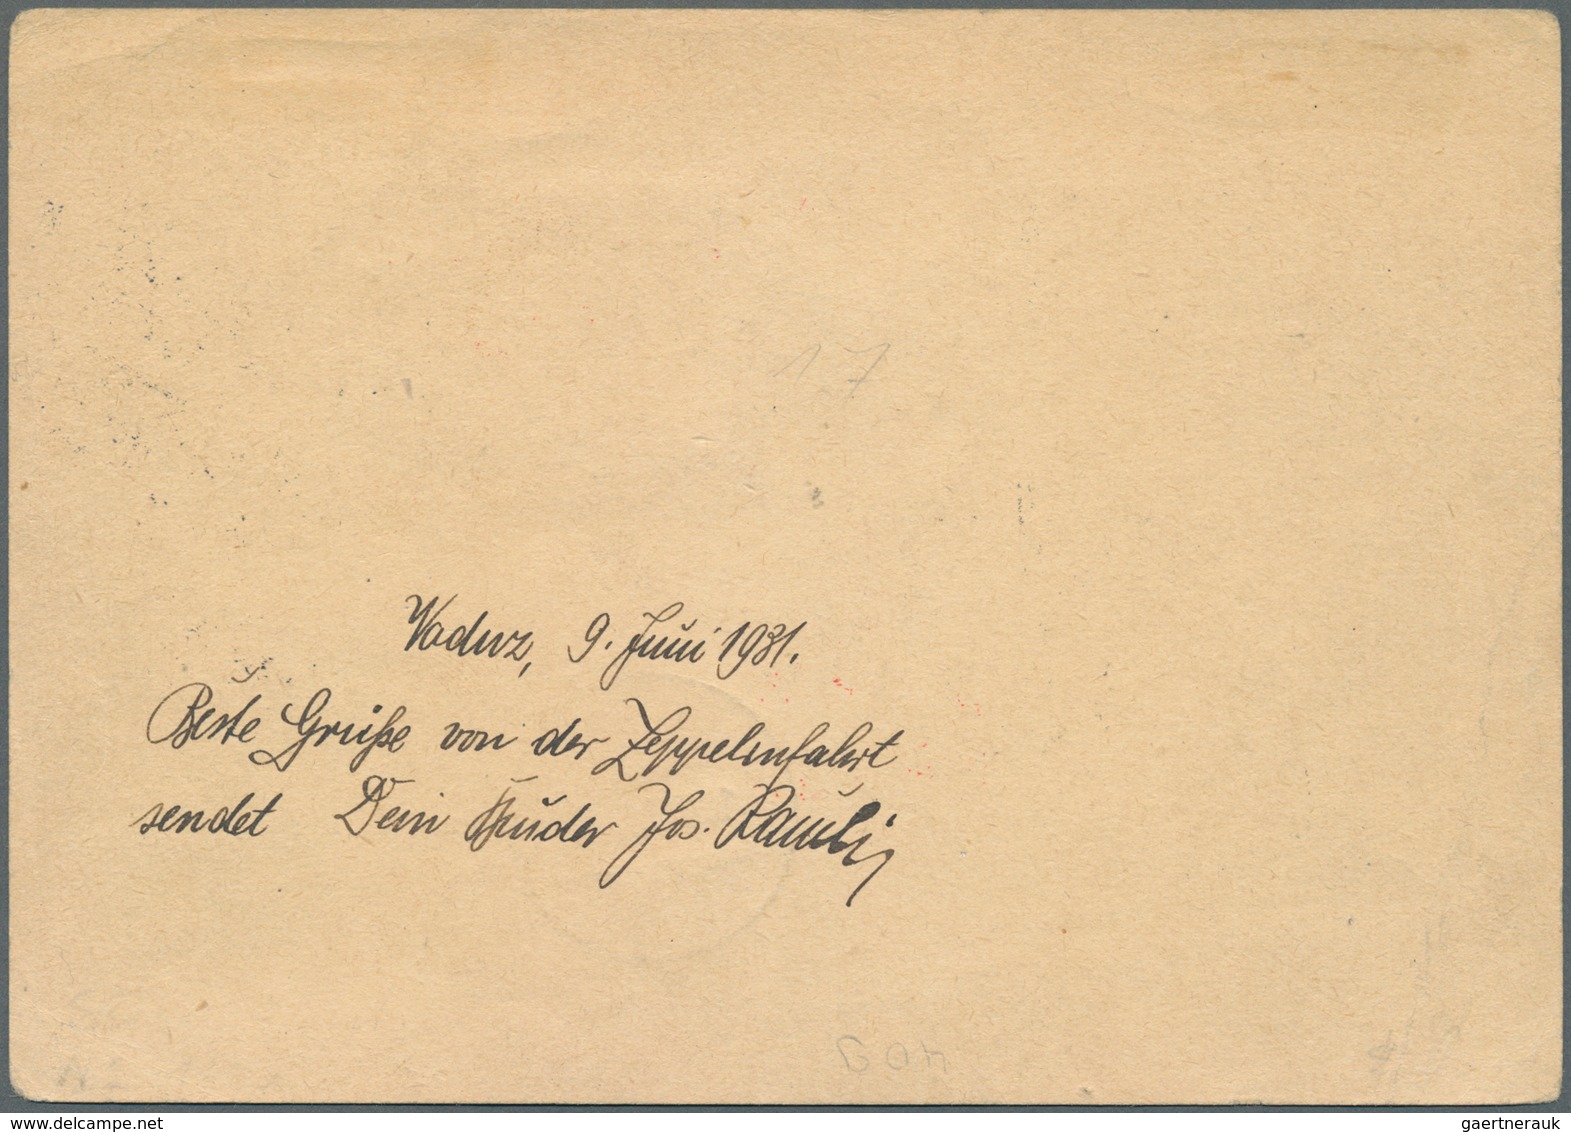 17
Vaduz, 9. Juni 1931.
Beste Grüße von der Zeppelinfahrt
sendet Dein Bruder Jos.
delcampe.net
gaertnerauk